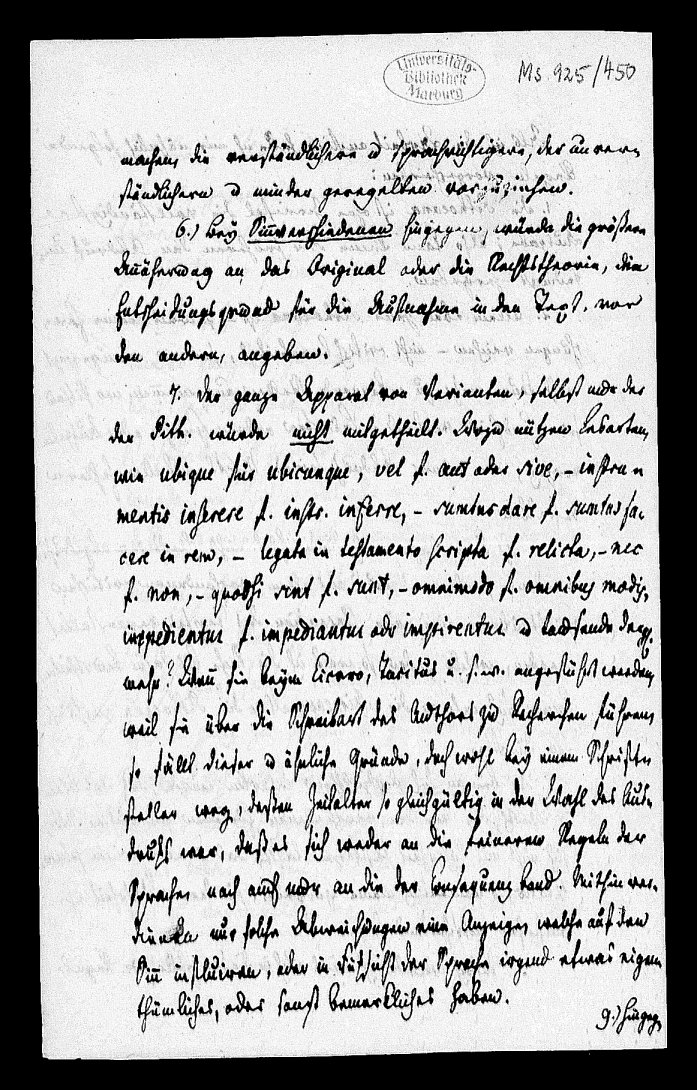 Universitäts-
Bibliothek
Marburg
Ms 925/450
machen, die verständlichern u sprachrichtigern, der unver-
ständlichern u minder geregelten vorzuziehen.
6.) Bey Sinnverschiedenen hingegen, würde die größere
Annäherung an das Original oder die Rechtstheorie, den
Entscheidungsgrund für die Aufnahme in den Text, vor
den andern, angeben.
7. Der ganze Apparat von Varianten, selbst nur der
der Pith. würde nicht mitgetheilt. Wozu nützen Lesarten,
wie ubique für ubicunque, vel f. aut oder sive, – instru-
mentis inserere f. instr. inferre, – sumtus dare f. sumtus fa-
cere in rem, – legata in testamento scripta f. relicta, – nec
f. non, – quodsi sint f. sunt, – omnimodo f. omnibus modis,
impedientur f. impediantur oder u tausende dergl.
mehr? Wenn sie beym Cicero, Tacitus u. s. w. angeführt werden,
weil sie über die Schreibart des Authors zu Recherchen führen,
so fällt dieser u ähnliche Gründe, doch wohl bey einem Schrift-
steller weg, dessen Zeitalter so gleichgültig in der Wahl des Aus-
drucks war, daß es sich weder an die feineren Regeln der
Sprache, noch auch nur an die der Consequenz band. Mithin ver-
dienen nur solche Abweichungen eine Anzeige, welche auf den
Sinn influiren, oder in Hinsicht der Sprache irgend etwas eigen-
thümliches, oder sonst bemerkliches haben.
9.) Hingeg.